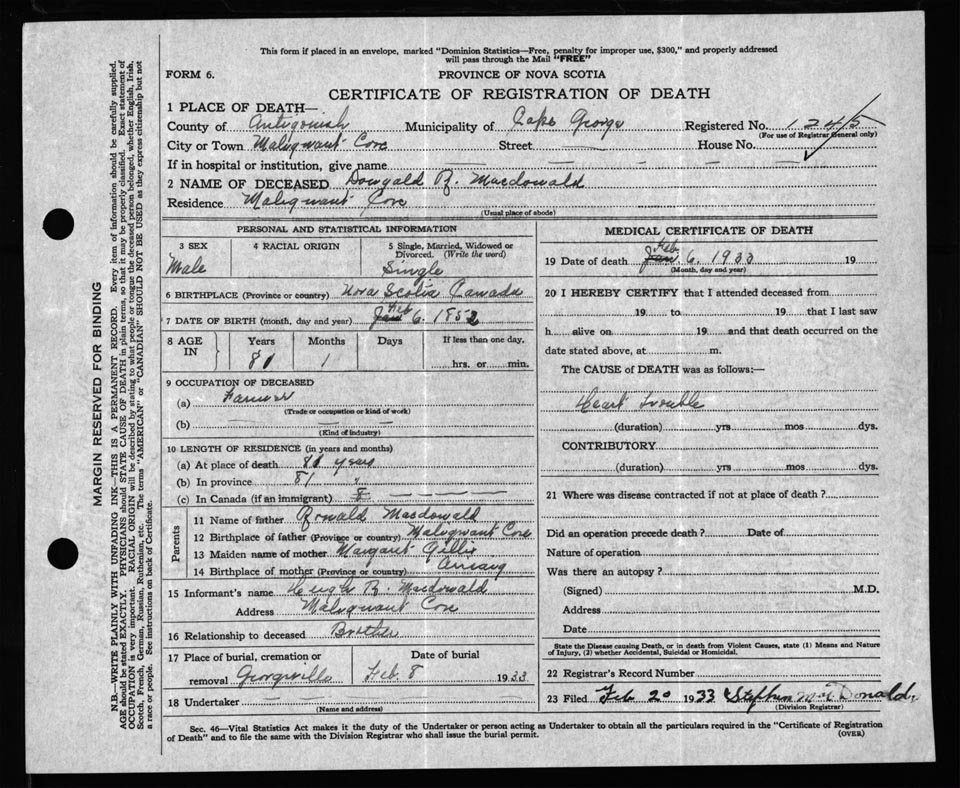 This form if placed in an envelope, marked "Dominion Statistics—Free, penalty for improper use, $300," and properly addressed
will pass through the Mail "FREE"
FORM 6.
PROVINCE OF NOVA SCOTIA
CERTIFICATE OF REGISTRATION OF DEATH
1 PLACE OF DEATH—
County of Antigonish Municipality of Cape George Registered No. 1245
(For use of Registrar General only)
City or Town Malignant Cove Street House No.
If in hospital or institution, give name
2 NAME OF DECEASED Dougald R. Macdonald
Residence Malignant Cove
(Usual place of abode)
PERSONAL AND STATISTICAL INFORMATION
3 SEX 4 RACIAL ORIGIN 5 Single, Married, Widowed or
Divorced. (Write the word)
Male Single
6 BIRTHPLACE (Province or country) Nova Scotia Canada
7 DATE OF BIRTH (month, day and year) Jan Feb 6. 1852
8 AGE IN Years Months Days If less than one day,
81 1 hrs. or min.
9 OCCUPATION OF DECEASED
(a) Farmer
(Trade or occupation or kind of work)
(b)
(Kind of industry)
10 LENGTH OF RESIDENCE (in years and months)
(a) At place of death 81 years
(b) In province 81 "
(c) In Canada (if an immigrant)
Parents
11 Name of father Ronald Macdonald
12 Birthplace of father (Province or country) Malignant Cove
13 Maiden name of mother Margaret Gillis
14 Birthplace of mother (Province or country) Arisaig
15 Informant's name Hugh R. Macdonald
Address Malignant Cove
16 Relationship to deceased Brother
17 Place of burial, cremation or Date of burial
removal Georgeville Feb 8 1933
18 Undertaker
(Name and address)
MEDICAL CERTIFICATE OF DEATH
19 Date of death Jan Feb. 6. 1933 19
(Month, day and year)
20 I HEREBY CERTIFY that I attended deceased from
19 to 19 that I last saw
h alive on 19 and that death occurred on the
date stated above, at m.
The CAUSE of DEATH was as follows:—
Heart trouble
(duration) yrs mos dys.
CONTRIBUTORY
(duration) yrs mos dys.
21 Where was disease contracted if not at place of death?
Did an operation precede death? Date of
Nature of operation
Was there an autopsy?
(Signed) M.D.
Address
Date
State the Disease causing Death, or in death from Violent Causes, state (1) Means and Nature
of Injury, (2) whether Accidental, Suicidal or Homicidal.
22 Registrar's Record Number
23 Filed Feb 20 1933 Stephen McDonald
(Division Registrar)
Sec. 46—Vital Statistics Act makes it the duty of the Undertaker or person acting as Undertaker to obtain all the particulars required in the "Certificate of Registration
of Death" and to file the same with the Division Registrar who shall issue the burial permit. (OVER)
MARGIN RESERVED FOR BINDING
N.B.—WRITE PLAINLY WITH UNFADING INK—THIS IS A PERMANENT RECORD. Every item of information should be carefully supplied.
AGE should be stated EXACTLY. PHYSICIANS should STATE CAUSE OF DEATH in plain terms, so that it may be properly classified. Exact statement of
OCCUPATION is very important. RACIAL ORIGIN will be described by stating to what people or tongue the deceased person belonged, whether English, Irish,
Scotch, French, German, Russian, Ruthenian, etc. The terms "AMERICAN" or "CANADIAN" SHOULD NOT BE USED as they express citizenship but not
a race or people. See instructions on back of Certificate.